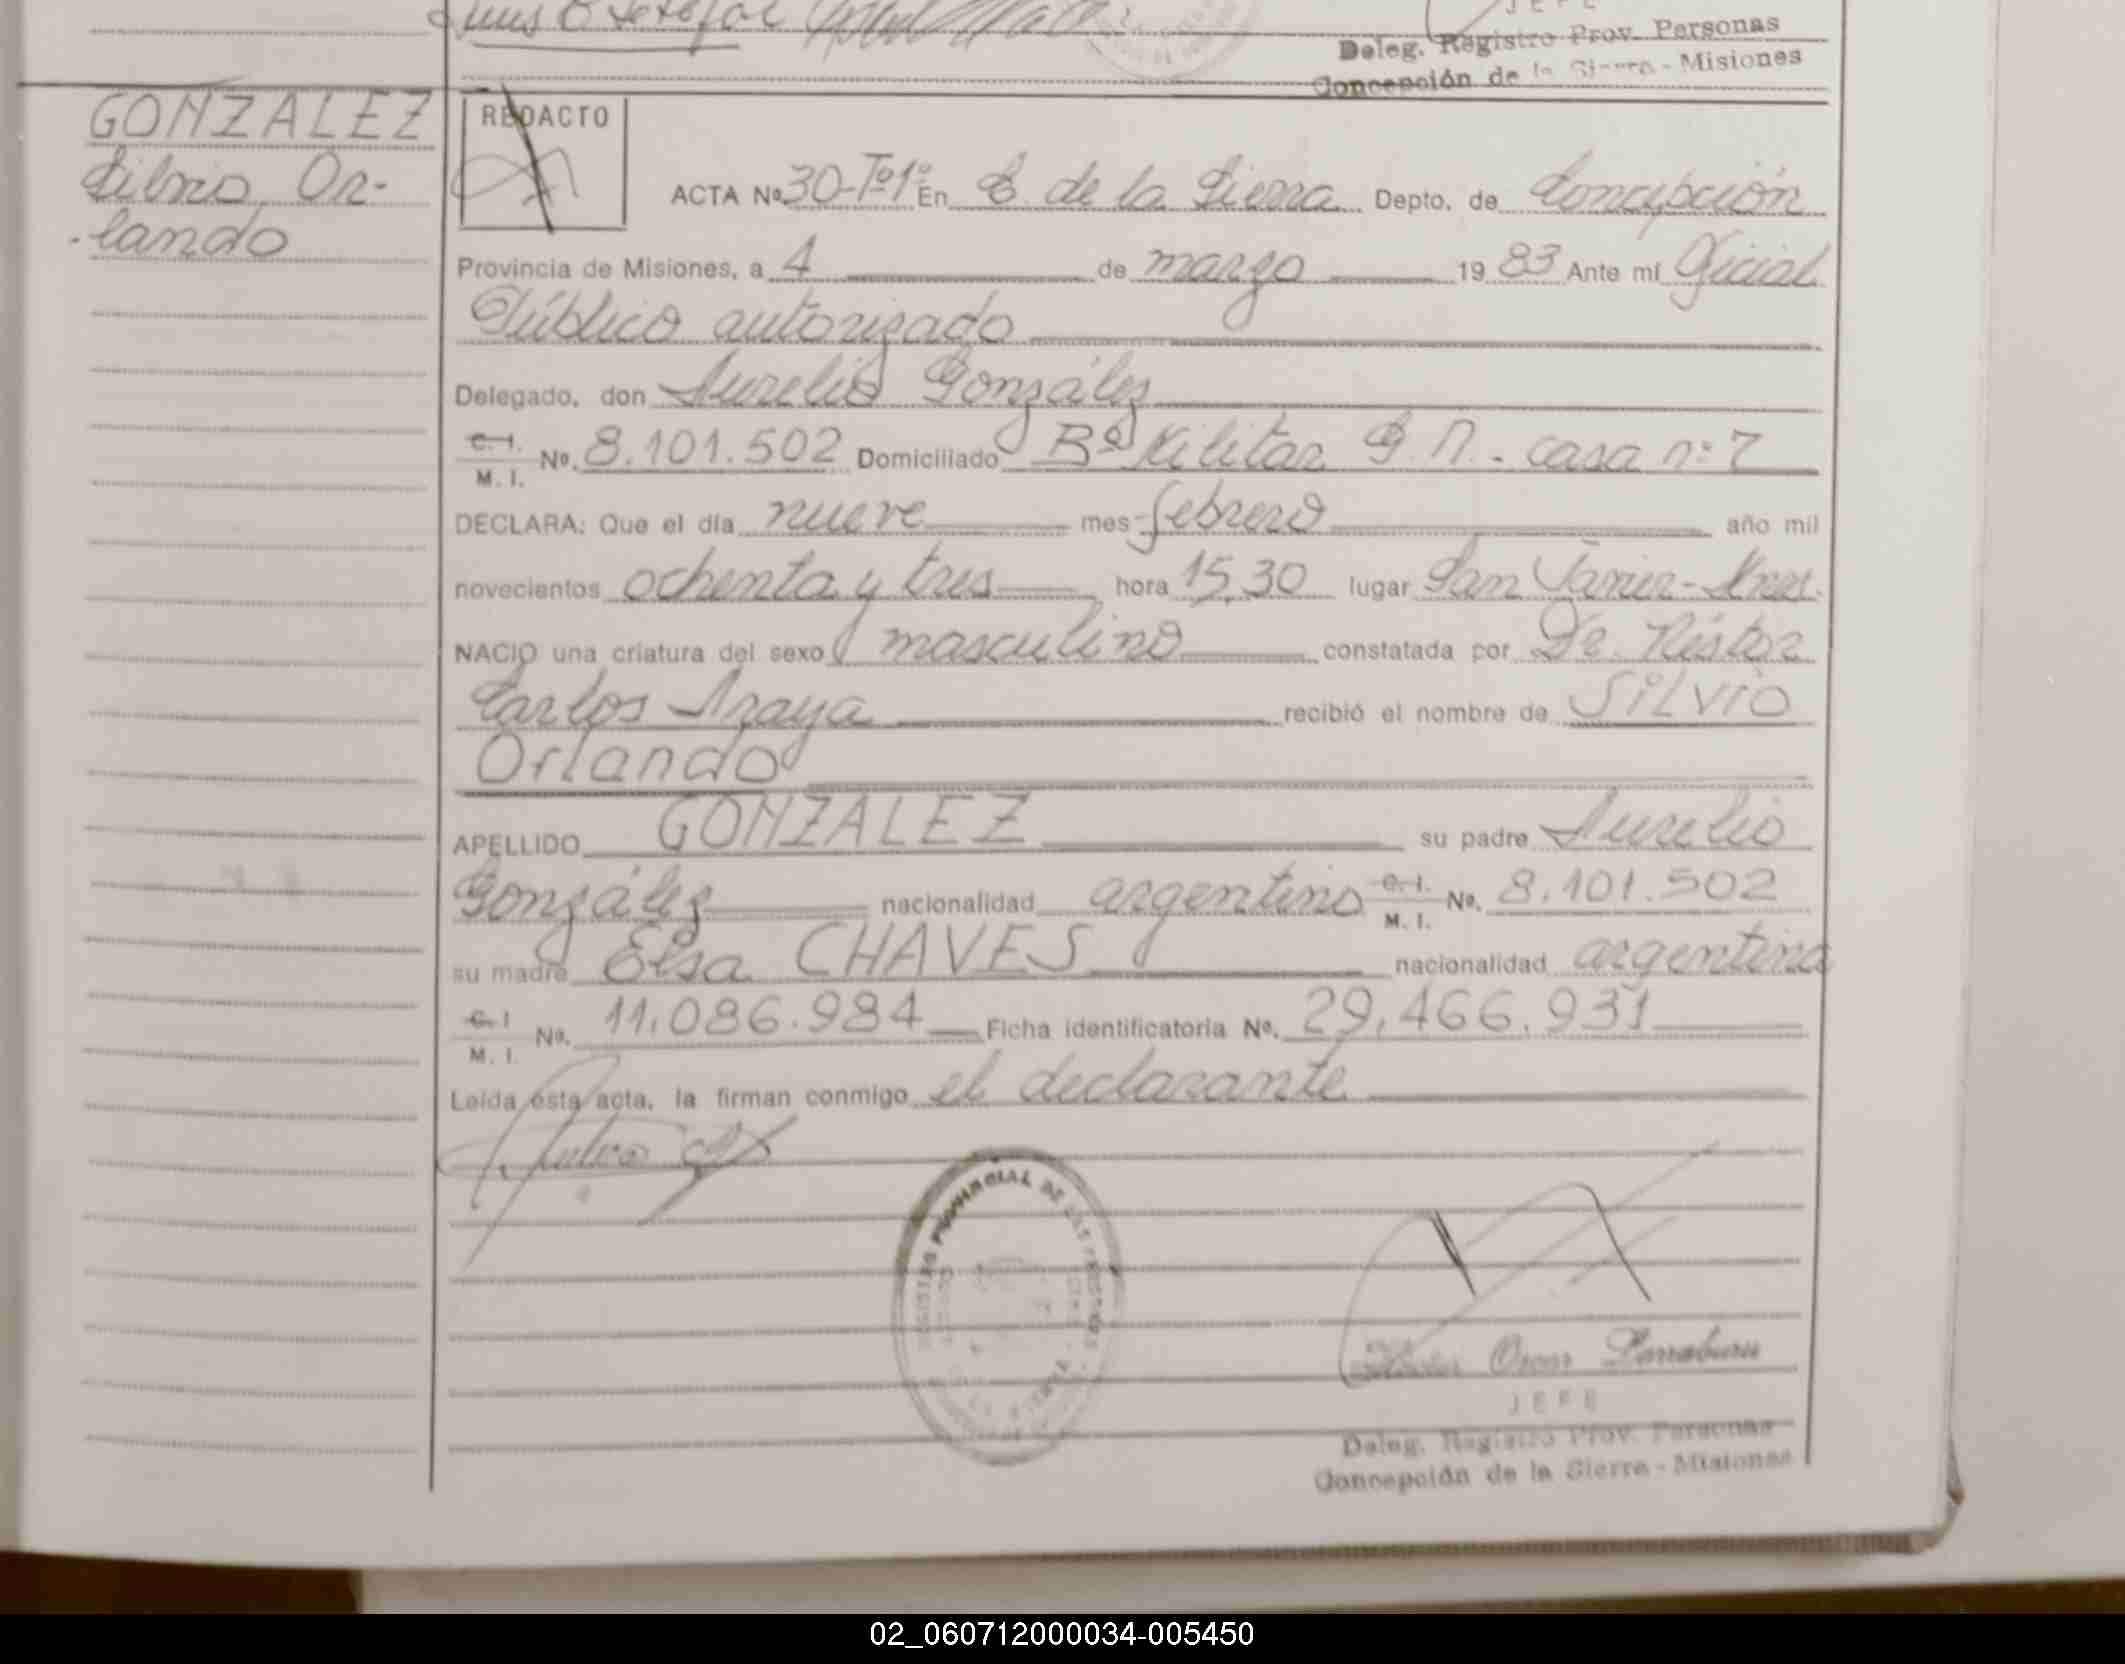 Deleg. Registro Prov. Personas
Concepción de la Sierra - Misiones
GONZALEZ
Silvio Or-
lando
REDACTO
ACTA Nº 30-Tº1º En C. de la Sierra Depto. de Concepción
Provincia de Misiones, a 4 de marzo 19 83 Ante mí Oficial
Público autorizado
Delegado, don Aurelio González
C. I.
M. I. Nº. 8.101.502 Domiciliado Bº Militar G. N. - casa nº 7
DECLARA: Que el día nueve mes febrero año mil
novecientos ochenta y tres hora 15,30 lugar San Javier - Mnes.
NACIO una criatura del sexo masculino constatada por Dr. Néstor
Carlos Araya recibió el nombre de Silvio
Orlando
APELLIDO GONZALEZ su padre Aurelio
González nacionalidad argentino C. I. M. I. Nº. 8.101.502
su madre Elsa CHAVES nacionalidad argentina
C. I
M. I. Nº. 11.086.984 Ficha identificatoria Nº. 29.466.931
Leída esta acta, la firman conmigo el declarante
REGISTRO PROVINCIAL DE LAS PERSONAS
Oscar Larraburu
JEFE
Deleg. Registro Prov. Personas
Concepción de la Sierra - Misiones
02_060712000034-005450